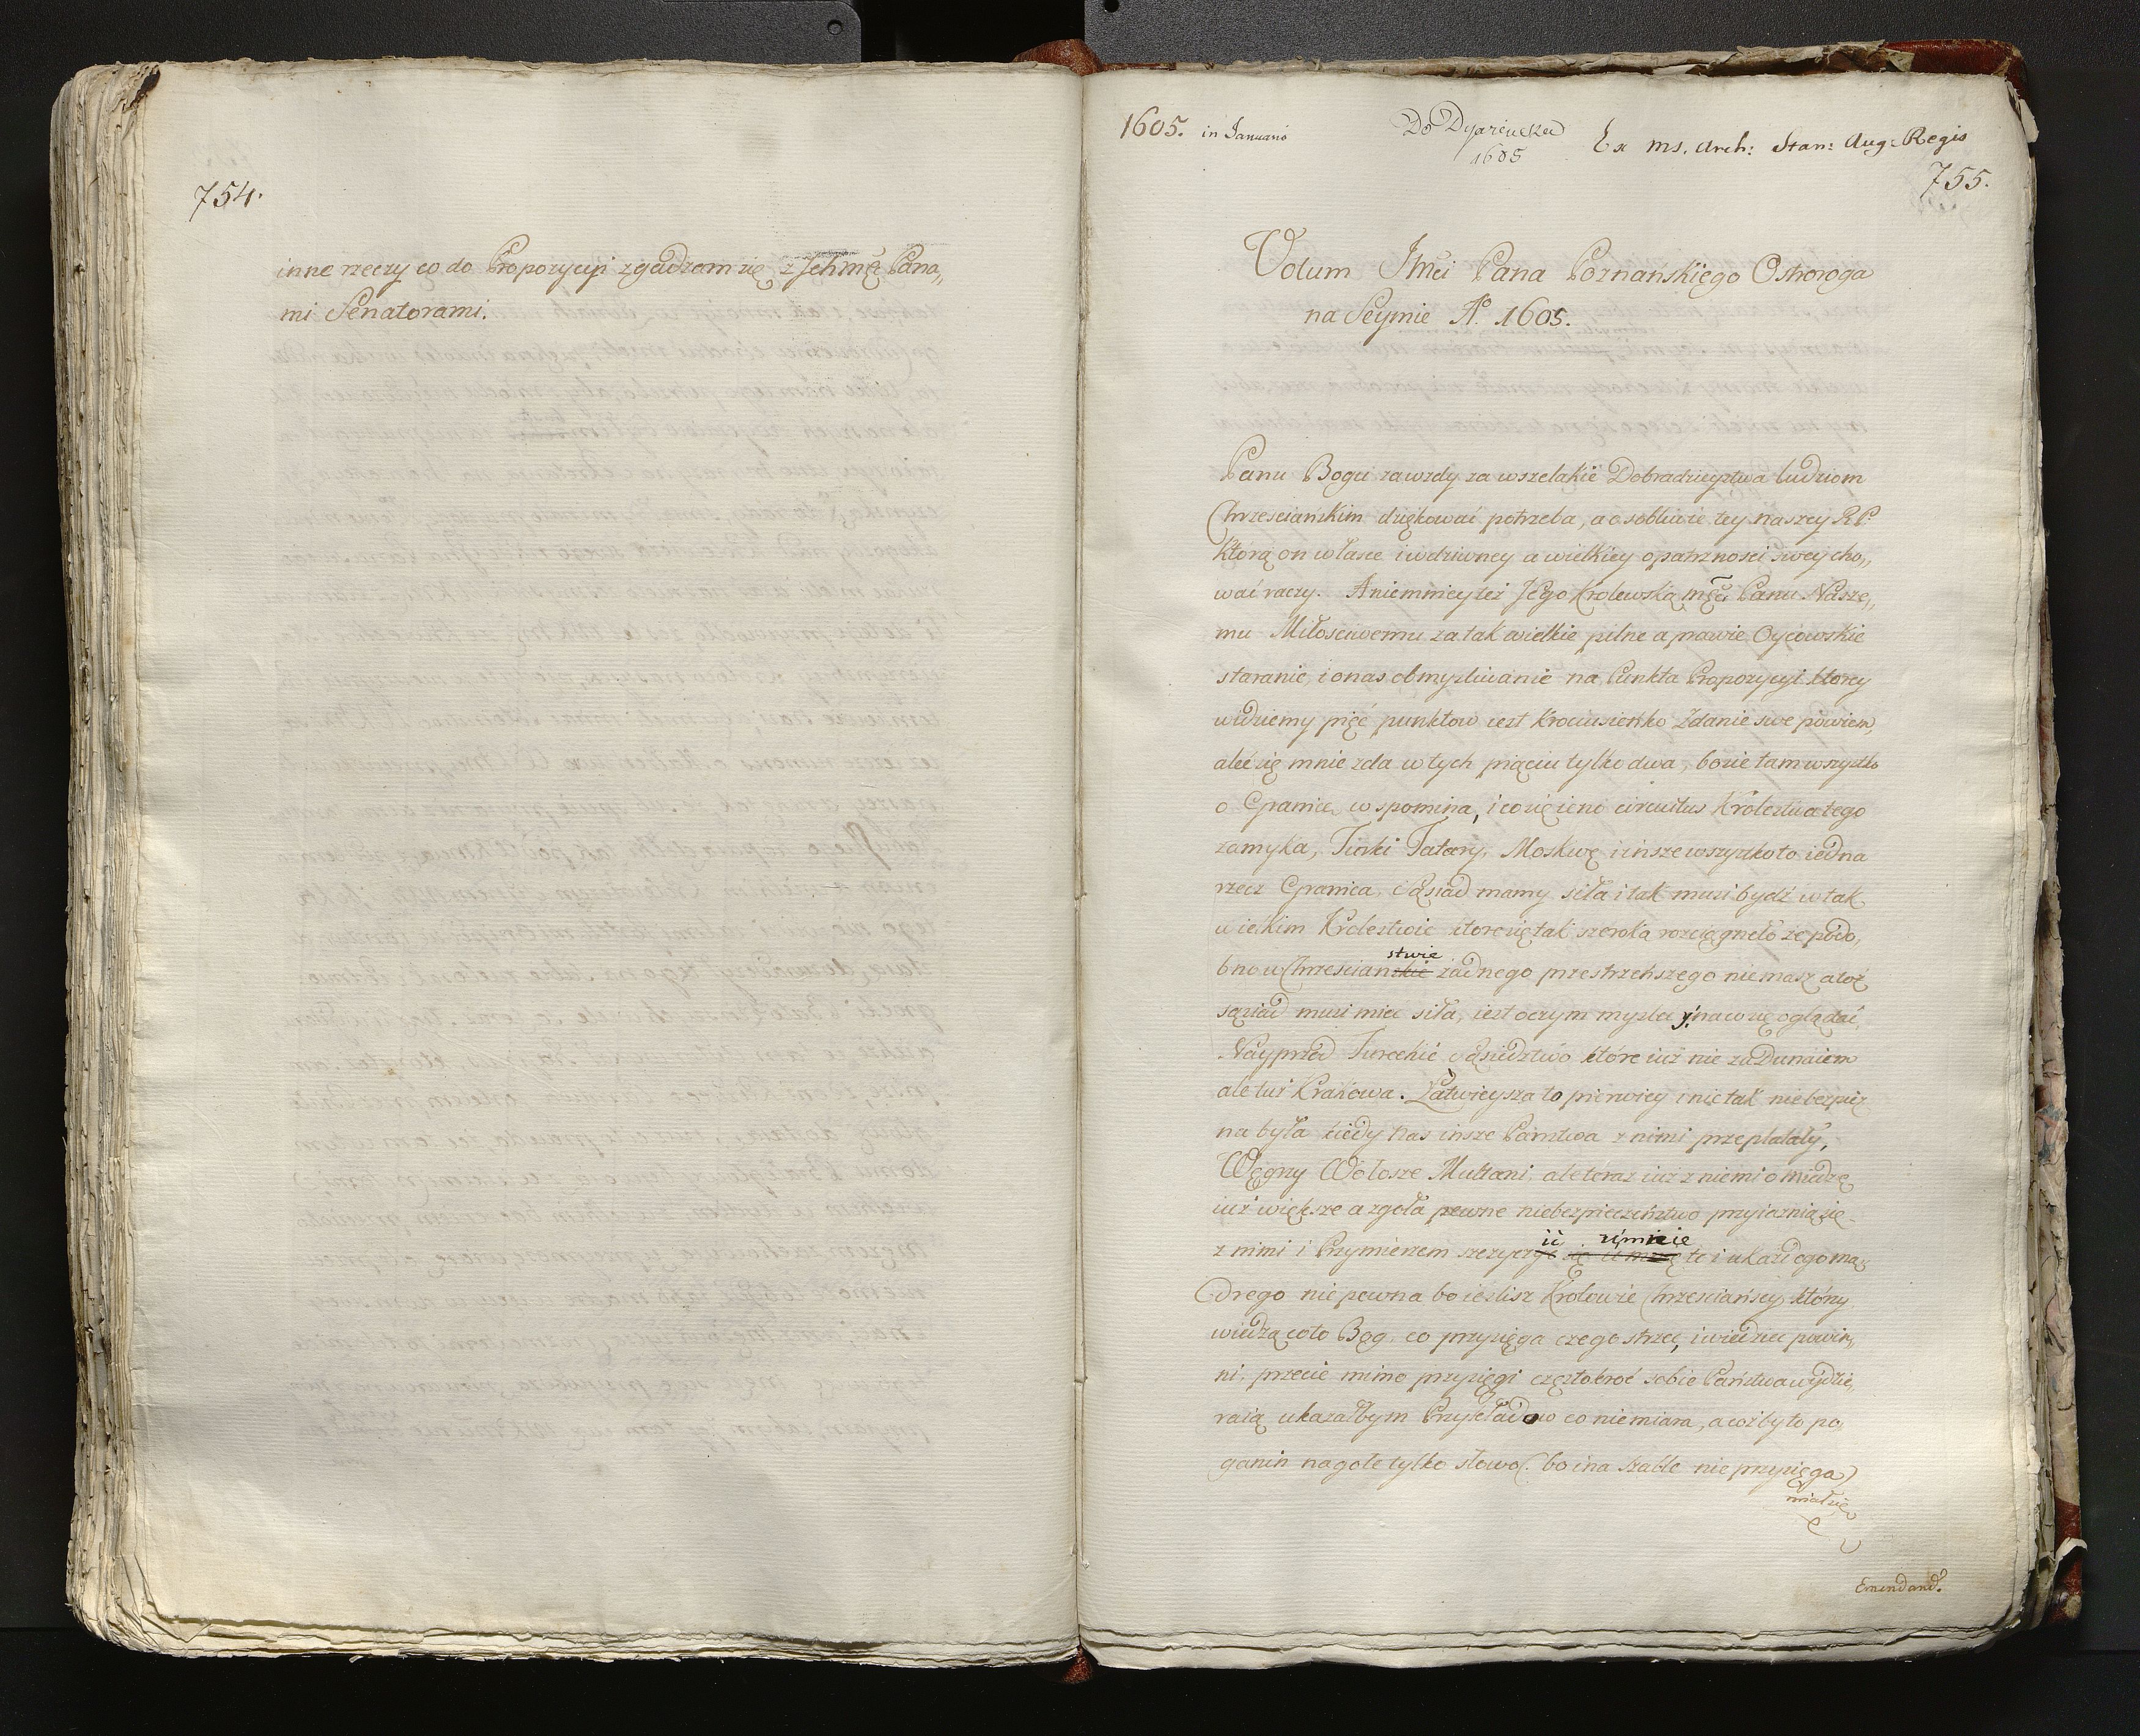 754.
inne rzeczy co do Propozycyi zgadzam się z Ichmę Pana„
mi Senatorami.
1605. in Januario
Do Dyariusza
1605
Ex ms. Arch: Stan: Aug: Regis
755.
Votum Jmći Pana Poznanskięgo Ostroroga
na Seymie Aº 1605.
Panu Bogu zawzdy za wszelakie Dobradzieystwa ludziom
Chrzesciańskim dziękować potrzeba, a osobliwie tey naszey R P.
Którą on w łasce i w dziwney a wielkiey opatrznosci swey cho„
wać raczy. A niemniey też Jego Krolewską Męći Panu Nasze„
mu Miłosciwemu za tak wielkie pilne a prawie Oycowskie
staranie, i o nas obmysliwanie na Punkta Propozycyi ktorey
widziemy pięć punktow iest Krociusieńko Zdanie swe powiem,
ale się mnie zda w tych piąciu tylko dwa, bo sie tam wszystko
o Granice wspomina, i co się ieno circuitus Krolestwa tego
zamyka, Turki Tatary, Moskwę i insze wszystko to iedna
rzecz Granica, Sąsiad mamy siła i tak musi bydź w tak
wielkim Krolestwie ktore się tak szeroką rozciągneło ze podo„
bno w Chrzescianskie stwie żadnego przestrzeńszego nie masz atoż
sąsiad musi mieć siła, iest o czym myslec y na co się oglądać,
Nayprzed Tureckie Sąsiedztwo które iuż nie za Dunaiem
ale tuż Krakowa. Łatwieysza to pierwiey i nie tak niebezpiez
na była kiedy nas insze Państwa z nimi przeplatały,
Węgry Wołosze Multani, ale teraz iuż z niemi o miedzę
iuż większe a zgoła pewne niebezpieczeństwo przyiaznią się
z nimi i Przymierzem szczyczy ić umicie to i u każdego mą„
drego nie pewna bo ieslisz Krolowie Chrzesciańscy którzy
wiedzą co to Bóg, co przysięga czego strzec, i wiedziec powin„
ni, przecie mimo przysięgi częstokroć sobie Państwa wydzie„
raią ukazałbym Przykładow co nie miara, a coż by to po„
ganin na gołe tylko słowo (bo i na szable nie przysięga)
miał się
Emendand.